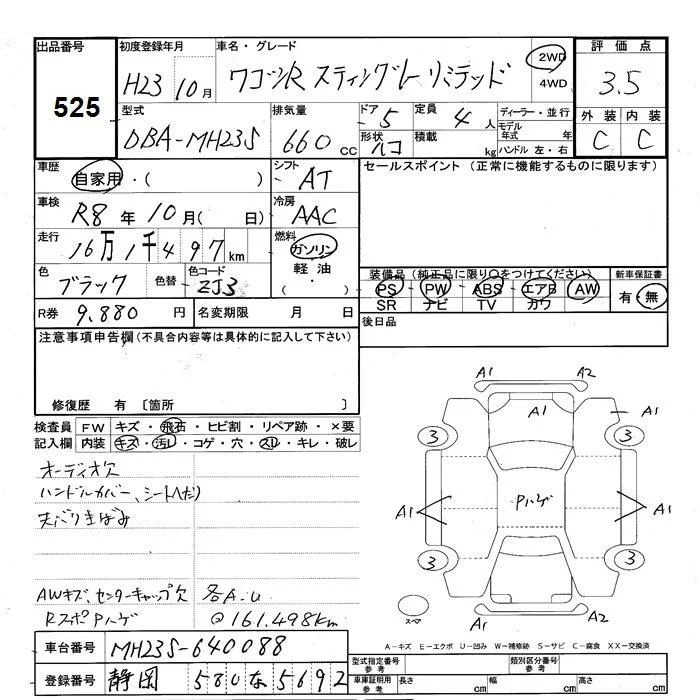 出品番号 初度登録年月 車名・グレード 評価点
525 H23 10月 ワゴンR スティングレー リミテッド 2WD 4WD 3.5
型式 排気量 ドア 5 定員 4人 ディーラー・並行 外装 内装
DBA-MH23S 660cc 形状 積載 kg モデル年式 年 ハンドル 左・右 C C
車歴 自家用・( ) シフト AT セールスポイント (正常に機能するものに限ります)
車検 R8年10月( 日) 冷房 AAC
走行 16万1千497km 燃料 ガソリン 軽油・( )
色 ブラック 色替 色コード ZJ3 装備品(純正品に限り○をつけてください) 新車保証書
PS PW ABS エアB AW 有・無
SR ナビ TV カワ
R券 9,880円 名変期限 月 日 後日品
注意事項申告欄(不具合内容等は具体的に記入して下さい)
修復歴 有 〔箇所 〕
検査員 FW キズ・飛石・ヒビ割・リペア跡・×要
記入欄 内装 キズ・汚レ・コゲ・穴・スレ・キレ・破レ
オーディオ欠
ハンドルカバー、シートへたり
天バリきばみ
AWキズ、センターキャップ欠 各A.U
RスポPハゲ @161,498km
A1 A2
A1 A1
3 3
A1 Pハゲ A1
3 3
スペア
A1 A2
A-キズ E-エクボ U-凹み W-補修跡 S-サビ C-腐食 XX-交換済
車台番号 MH23S-640088
型式指定番号 参考 類別区分番号 参考
登録番号 静岡 580 な 5692
車庫証明用 参考 長さ cm 幅 cm 高さ cm